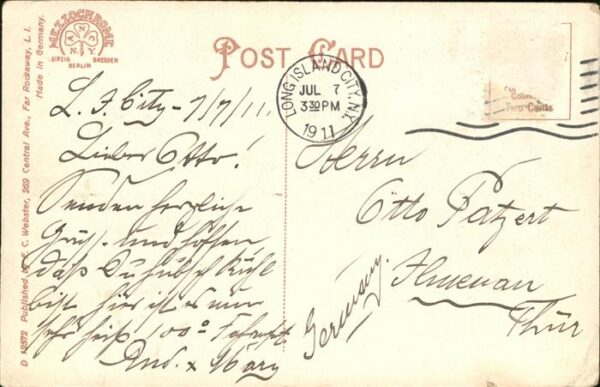 MEZZOCHROME
A N C
N.Y.
LEIPZIG DRESDEN
BERLIN
POST CARD
LONG ISLAND CITY, N.Y.
JUL 7
3 30 PM
1911
Two Cents
D 19572 Published by C. Webster, 269 Central Ave., Far Rockaway, L. I.
Made in Germany.
L. I. City - 7/7/11.
Lieber Otto!
Senden herzliche
Grüße und hoffen
daß Du hübsch kühl
bist hier ist es nun
sehr heiß 100° Fahrht.
And. x Mary
Herrn
Otto Patzert
Ilmenau
Thür
Germany.